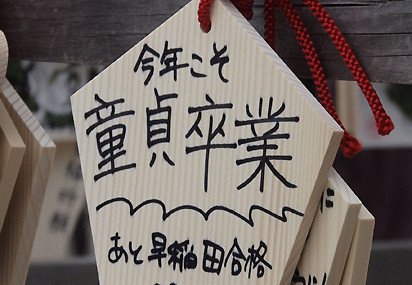 今年こそ
童貞卒業
あと早稲田合格